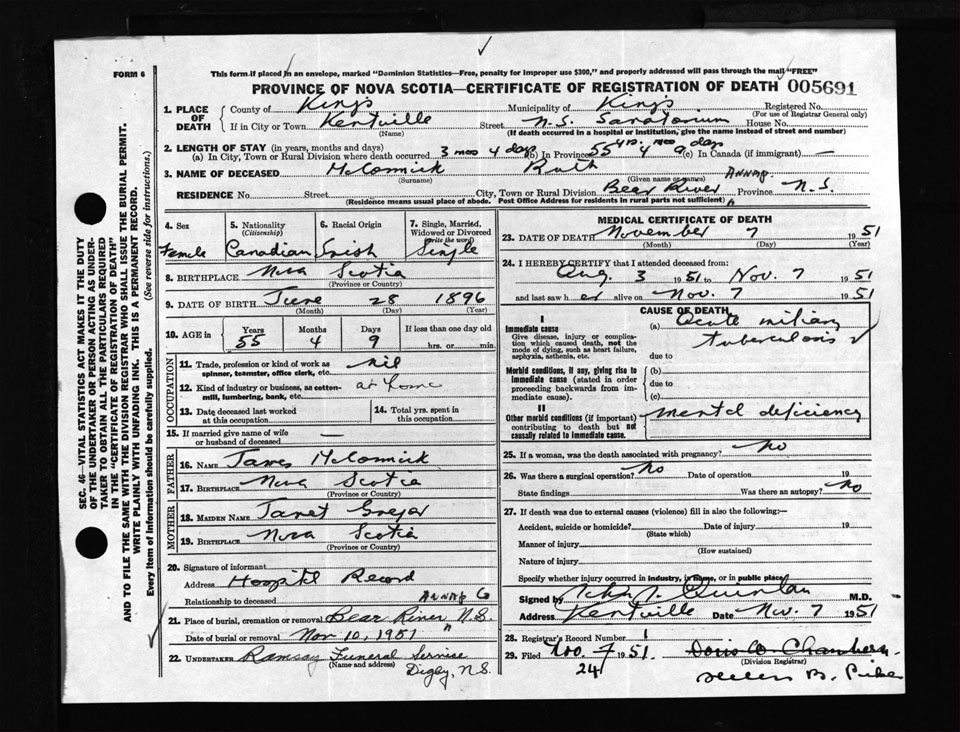 FORM 6
This form if placed in an envelope, marked "Dominion Statistics—Free, penalty for improper use $300," and properly addressed will pass through the mail "FREE"
PROVINCE OF NOVA SCOTIA—CERTIFICATE OF REGISTRATION OF DEATH 005691
1. PLACE OF DEATH
County of Kings Municipality of Kings Registered No.
(For use of Registrar General only)
If in City or Town Kentville Street N.S. Sanatorium House No.
(Name) (If death occurred in a hospital or institution, give the name instead of street and number)
2. LENGTH OF STAY (in years, months and days)
(a) In City, Town or Rural Division where death occurred 3 mos 4 days (b) In Province 55 yrs. 4 mos 9 days (c) In Canada (if immigrant) —
3. NAME OF DECEASED McCormick Ruth
(Surname) (Given name or names)
Annap.
RESIDENCE No. Street City, Town or Rural Division Bear River Province N.S.
(Residence means usual place of abode. Post Office Address for residents in rural parts not sufficient)
4. Sex Female
5. Nationality (Citizenship) Canadian
6. Racial Origin Irish
7. Single, Married, Widowed or Divorced (write the word) Single
8. BIRTHPLACE Nova Scotia
(Province or Country)
9. DATE OF BIRTH June 28 1896
(Month) (Day) (Year)
10. AGE in Years Months Days If less than one day old
55 4 9 hrs. or min.
OCCUPATION
11. Trade, profession or kind of work as spinner, teamster, office clerk, etc. nil
12. Kind of industry or business, as cotton-mill, lumbering, bank, etc. at home
13. Date deceased last worked at this occupation
14. Total yrs. spent in this occupation
15. If married give name of wife or husband of deceased —
FATHER
16. NAME James McCormick
17. BIRTHPLACE Nova Scotia
(Province or Country)
MOTHER
18. MAIDEN NAME Janet
19. BIRTHPLACE Nova Scotia
(Province or Country)
20. Signature of informant
Address Hospital Record
Relationship to deceased
Annap Co
21. Place of burial, cremation or removal Bear River N.S.
Date of burial or removal Nov 10, 1951 "
22. UNDERTAKER Ramsay Funeral Service
(Name and address) Digby, N.S.
MEDICAL CERTIFICATE OF DEATH
23. DATE OF DEATH November 7 1951
(Month) (Day) (Year)
24. I HEREBY CERTIFY that I attended deceased from:
Aug. 3 1951 to Nov. 7 1951
and last saw h er alive on Nov. 7 1951
CAUSE OF DEATH
I
Immediate cause
Give disease, injury or complication which caused death, not the mode of dying, such as heart failure, asphyxia, asthenia, etc.
(a) Acute miliary tuberculosis
due to
Morbid conditions, if any, giving rise to immediate cause (stated in order proceeding backwards from immediate cause).
(b)
due to
(c)
II
Other morbid conditions (if important) contributing to death but not causally related to immediate cause.
mental deficiency
25. If a woman, was the death associated with pregnancy? No
26. Was there a surgical operation? No Date of operation 19
State findings Was there an autopsy? No
27. If death was due to external causes (violence) fill in also the following:—
Accident, suicide or homicide? Date of injury 19
(State which)
Manner of injury
(How sustained)
Nature of injury
Specify whether injury occurred in industry, in home, or in public place
Signed by Quinlan M.D.
Address Kentville Date Nov. 7 1951
28. Registrar's Record Number 1
29. Filed Nov. 7 1951.
24
(Division Registrar)
Helen B.
SEC. 46—VITAL STATISTICS ACT MAKES IT THE DUTY
OF THE UNDERTAKER OR PERSON ACTING AS UNDER-
TAKER TO OBTAIN ALL THE PARTICULARS REQUIRED
IN THE "CERTIFICATE OF REGISTRATION OF DEATH"
AND TO FILE THE SAME WITH THE DIVISION REGISTRAR WHO SHALL ISSUE THE BURIAL PERMIT.
WRITE PLAINLY WITH UNFADING INK. THIS IS A PERMANENT RECORD.
Every item of information should be carefully supplied. (See reverse side for instructions.)